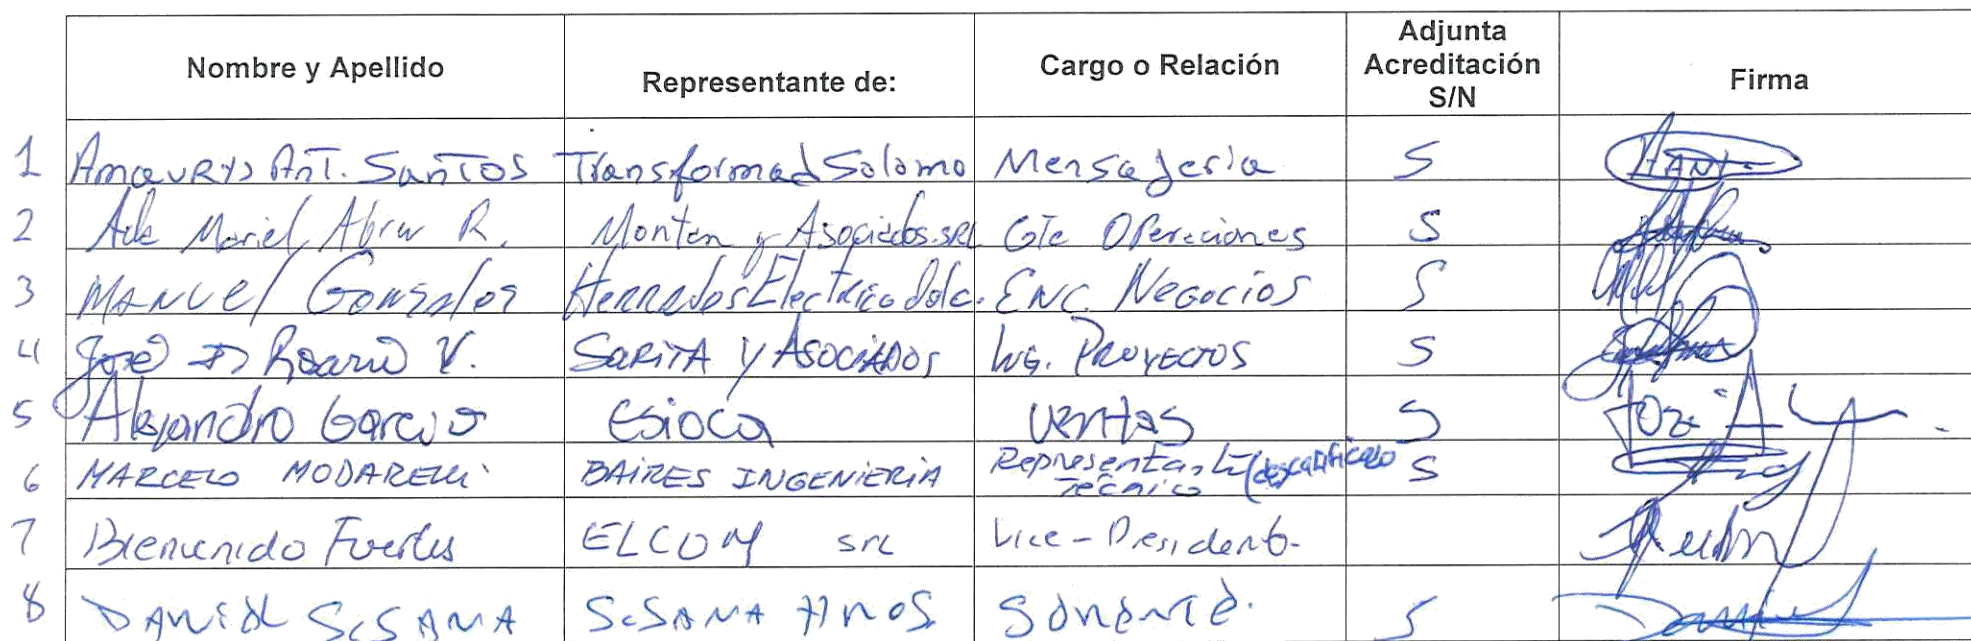 Nombre y Apellido Representante de: Cargo o Relación Adjunta Acreditación S/N Firma
1 Amaurys Ant. Santos Transformad Solomo Mensajeria S
2 Mariel Abreu R. y Asociados.SRL Gte Operaciones S
3 Manuel Gonzalez Electrico Enc. Negocios S
4 José Rosario V. Sarita y Asociados Ing. Proyectos S
5 Alejandro Garcia Esioca Ventas S
6 MARCELO MODARELLI BAIRES INGENIERIA Representante Técnico (descalificado S
7 Bienvenido Fuertes ELCOM srl Vice-Presidente
8 DANIEL SUSANA SUSANA HNOS. S